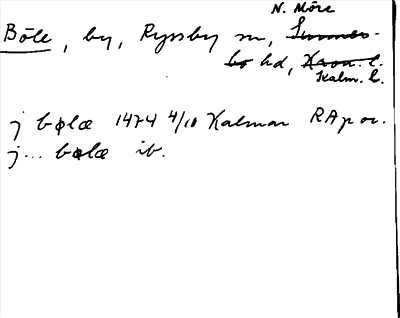 N. Möre
Böle, by, Ryssby sn, Sunner-
bo hd, Kron. l.
Kalm. l.
j bølæ 1474 4/10 Kalmar RAp or.
j... bølæ ib.